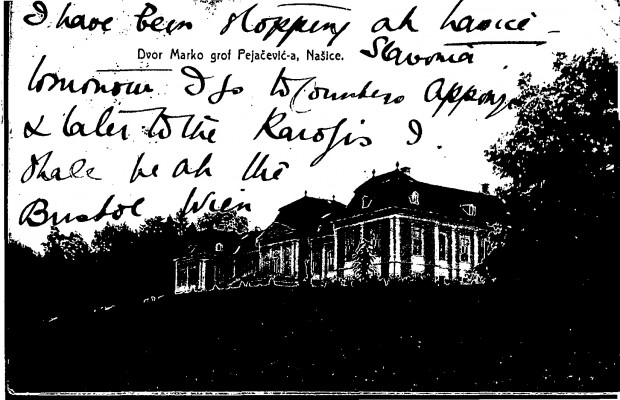 I have been stopping at Nasice
Dvor Marko grof Pejačević-a, Našice.
Slavonia
tomorrow I go to Countess Appony
& later to the Karolis I
shall be at the
Bristol Wien